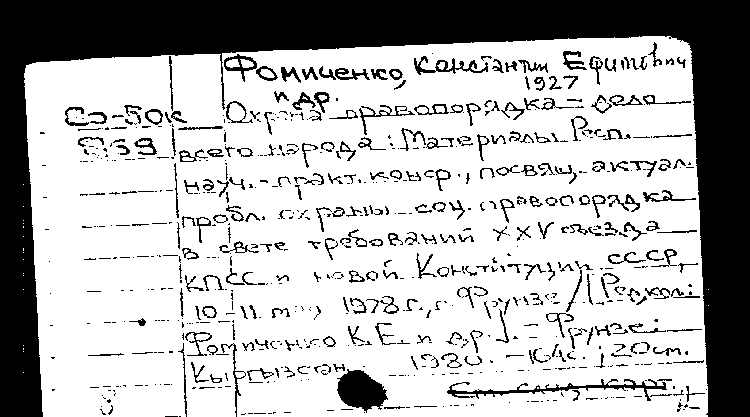 Фомиченко, Константин Ефимович
1927
и др.
Сэ-50к Охрана правопорядка - дело
всего народа: Материалы Респ.
науч.-практ. конф., посвящ. актуал.
пробл. охраны соц. правопорядка
в свете требований XXV съезда
КПСС и новой Конституции СССР,
10-11 мая 1978 г., г. Фрунзе / [Редкол.:
Фомиченко К.Е. и др.]. - Фрунзе:
Кыргызстан, 1980. - 164с.; 20см.
См. след. карт.